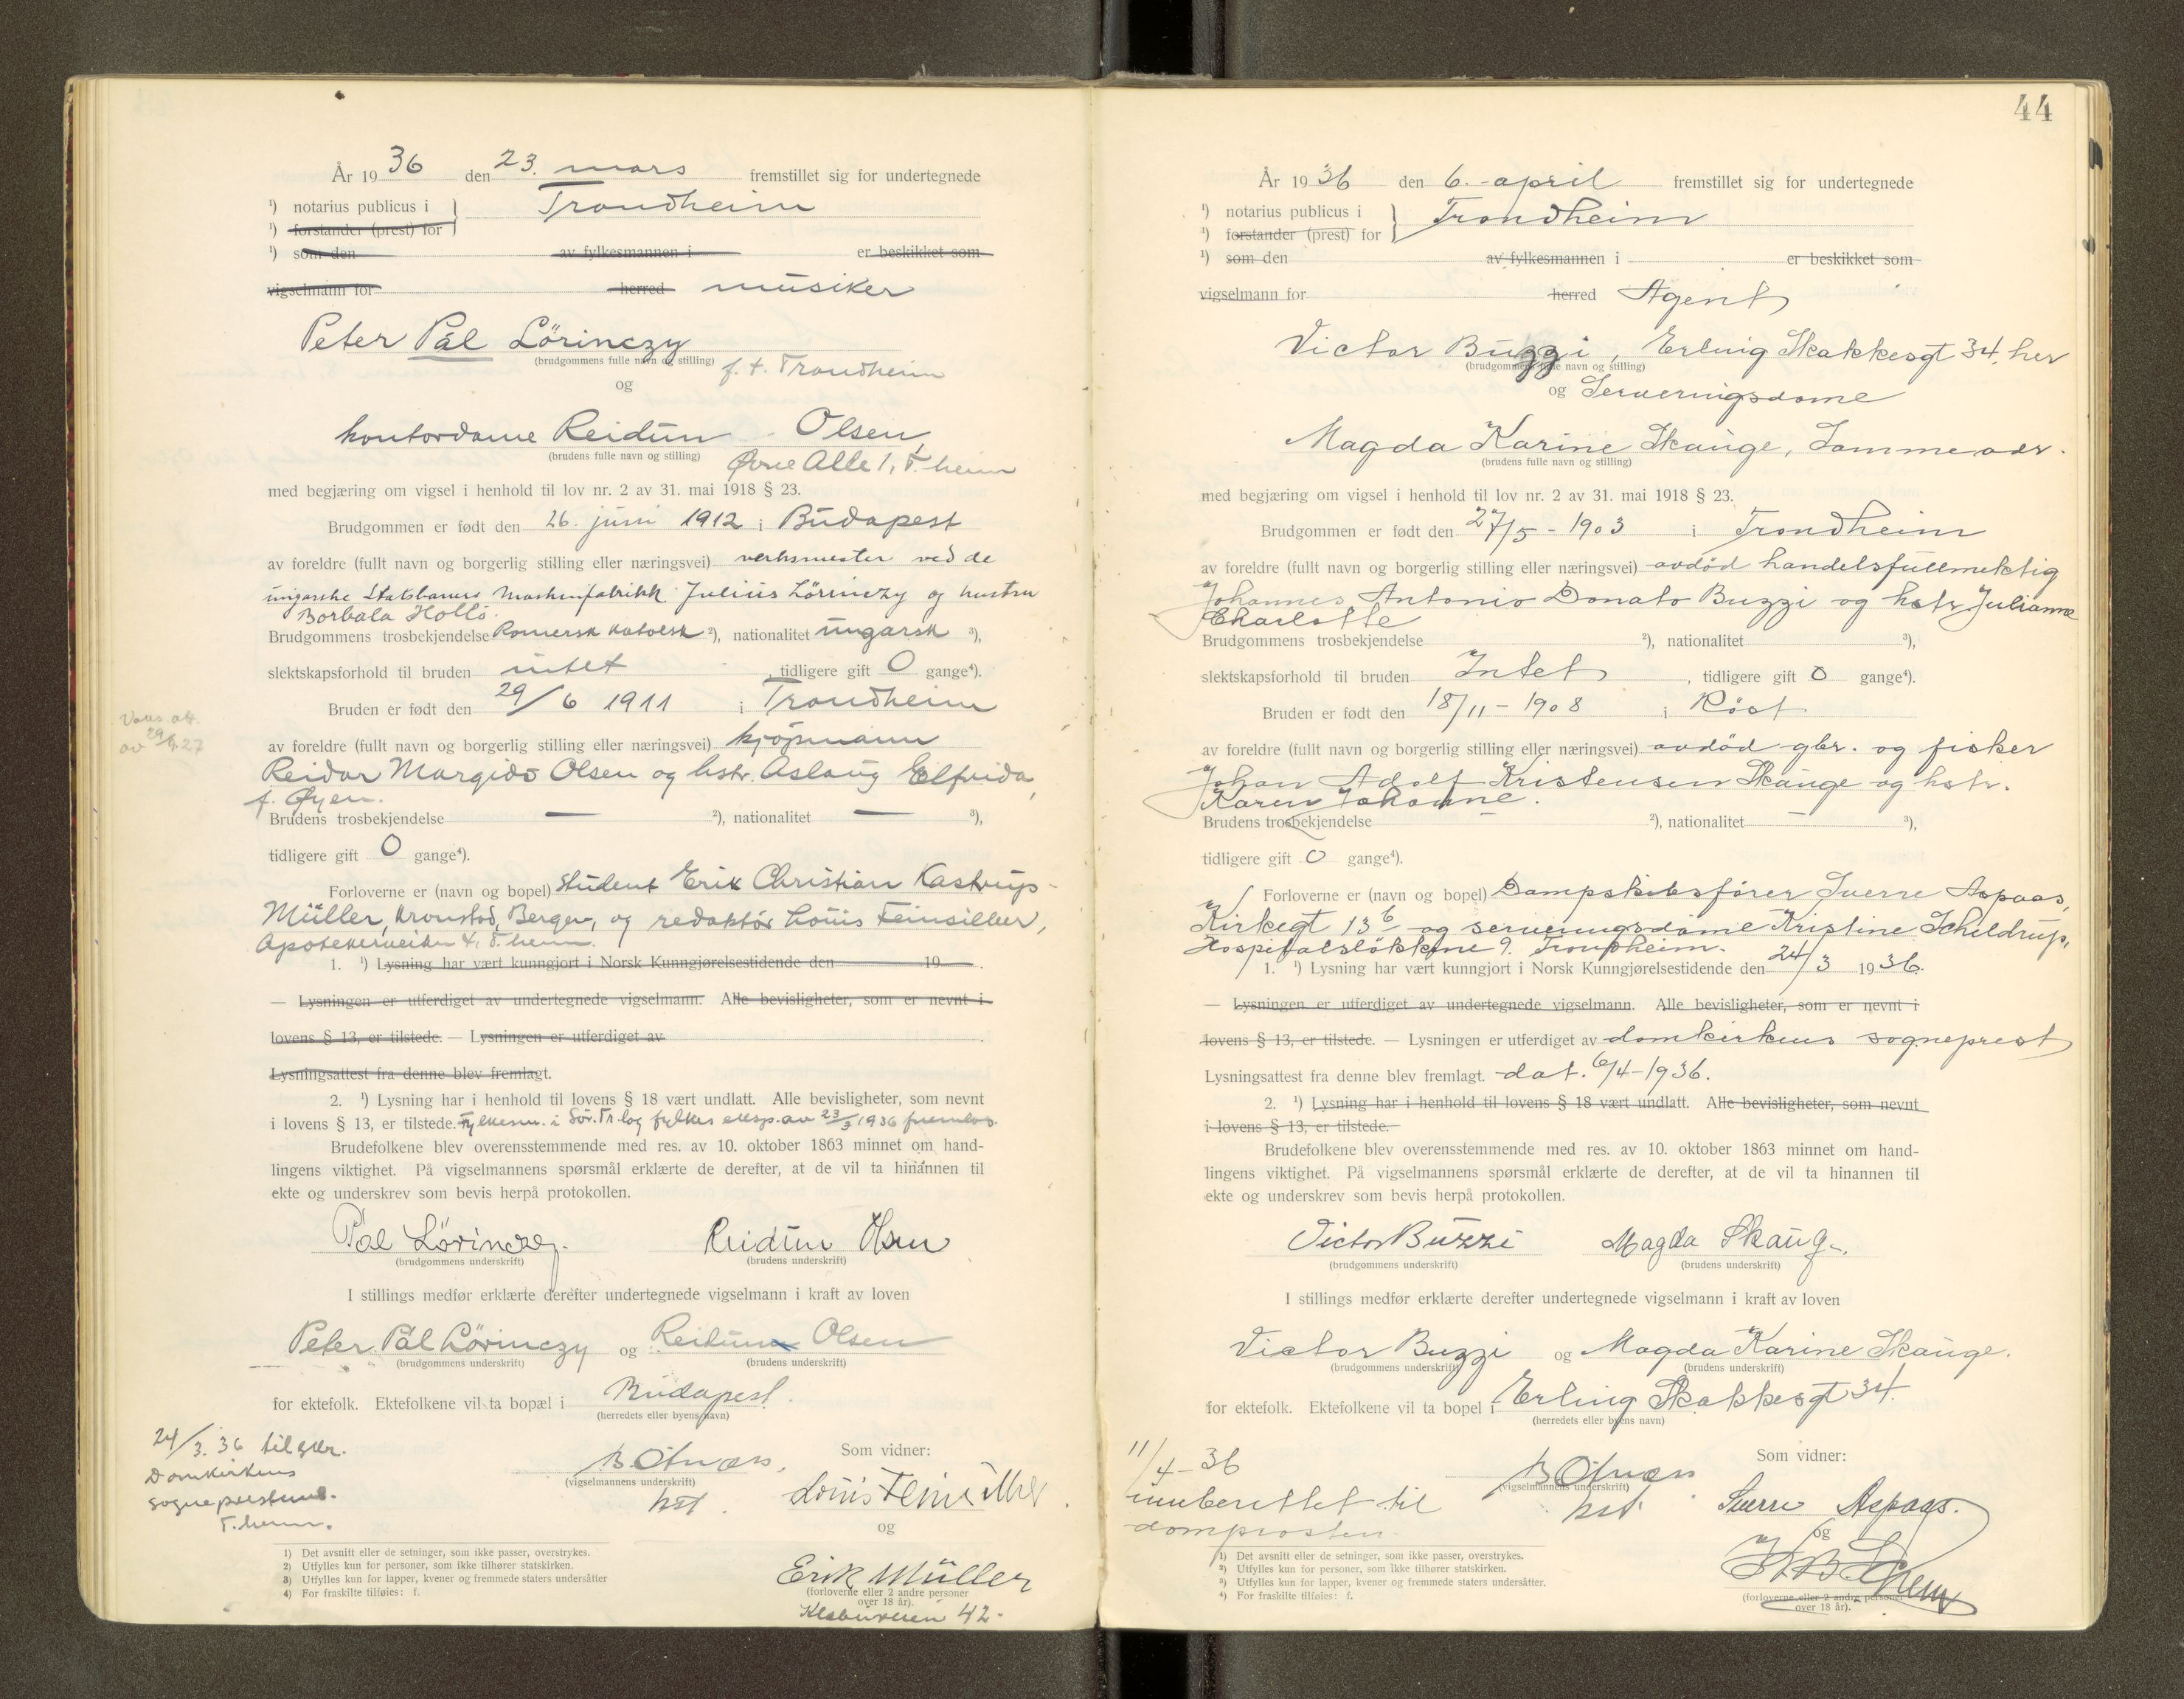 År 1936 den 23. mars fremstillet sig for undertegnede
¹) notarius publicus i } Trondheim
¹) forstander (prest) for
¹) som den av fylkesmannen i er beskikket som
vigselmann for herred musiker
Peter Pál Lörinczy
(brudgommens fulle navn og stilling) f. t. Trondheim
og
kontordame Reidun Olsen,
(brudens fulle navn og stilling) Øvre Alle 1, T.heim
med begjæring om vigsel i henhold til lov nr. 2 av 31. mai 1918 § 23.
Brudgommen er født den 26. juni 1912 i Budapest
av foreldre (fullt navn og borgerlig stilling eller næringsvei) verksmester ved de
ungarske Statsbaners Maskinfabrikk Julius Lörinczy og hustru
Borbala Holló.
Brudgommens trosbekjendelse Romersk katolsk ²), nationalitet ungarsk ³),
slektskapsforhold til bruden intet, tidligere gift 0 gange⁴).
Bruden er født den 29/6 1911 i Trondheim
av foreldre (fullt navn og borgerlig stilling eller næringsvei) kjøpmann
Reidar Margido Olsen og hstr. Aslaug Elfrida,
f. Øyen.
Brudens trosbekjendelse — ²), nationalitet — ³),
tidligere gift 0 gange⁴).
Forloverne er (navn og bopel) Student Erik Christian Kastrup-
Müller, Kronstad, Bergen, og redaktör Louis Feinsilber,
Apotekerveiten 4, T.heim.
1. ¹) Lysning har vært kunngjort i Norsk Kunngjørelsestidende den 19 .
— Lysningen er utferdiget av undertegnede vigselmann. Alle bevisligheter, som er nevnt i
lovens § 13, er tilstede. — Lysningen er utferdiget av .
Lysningsattest fra denne blev fremlagt.
2. ¹) Lysning har i henhold til lovens § 18 vært undlatt. Alle bevisligheter, som nevnt
i lovens § 13, er tilstede. Fylkesm. i Sör-Tr.lag fylkes eksp. av 23/3 1936 fremlas.
Brudefolkene blev overensstemmende med res. av 10. oktober 1863 minnet om hand-
lingens viktighet. På vigselmannens spørsmål erklærte de derefter, at de vil ta hinannen til
ekte og underskrev som bevis herpå protokollen.
Pál Lörinczy. Reidun Olsen
(brudgommens underskrift) (brudens underskrift)
I stillings medfør erklærte derefter undertegnede vigselmann i kraft av loven
Peter Pál Lörinczy og Reidun Olsen
(brudgommens underskrift) (brudens underskrift)
for ektefolk. Ektefolkene vil ta bopæl i Budapest.
(herredets eller byens navn)
24/3. 36 tilskr.
Domkirkens
sogneprest
T.heim.
(vigselmannens underskrift)
Som vidner:
Louis Feinsilber.
og
Erik Müller
(forloverne eller 2 andre personer
over 18 år).
Klæbuveien 42.
1) Det avsnitt eller de setninger, som ikke passer, overstrykes.
2) Utfylles kun for personer, som ikke tilhører statskirken.
3) Utfylles kun for lapper, kvener og fremmede staters undersåtter
4) For fraskilte tilføies: f.
44
År 1936 den 6. april fremstillet sig for undertegnede
¹) notarius publicus i } Trondheim
¹) forstander (prest) for
¹) som den av fylkesmannen i er beskikket som
vigselmann for herred Agent
Victor Buzzi, Erling Skakkesgt 34, her
(brudgommens fulle navn og stilling)
og Serveringsdame
Magda Karine Skauge, Samme adr.
(brudens fulle navn og stilling)
med begjæring om vigsel i henhold til lov nr. 2 av 31. mai 1918 § 23.
Brudgommen er født den 27/5 - 1903 i Trondheim
av foreldre (fullt navn og borgerlig stilling eller næringsvei) avdöd handelsfullmektig
Johannes Antonio Donato Buzzi og hstr Julianne
Charlotte
Brudgommens trosbekjendelse ²), nationalitet ³),
slektskapsforhold til bruden Intet, tidligere gift 0 gange⁴).
Bruden er født den 18/11 - 1908 i Röst.
av foreldre (fullt navn og borgerlig stilling eller næringsvei) avdöd gbr. og fisker
Johan Adolf Kristensen Skauge og hstr.
Karen Johanne.
Brudens trosbekjendelse ²), nationalitet ³),
tidligere gift 0 gange⁴).
Forloverne er (navn og bopel) Dampskibsförer Sverre Aspaas,
Kirkegt 13 b og serveringsdame Kristine Schildrup,
Hospitalslökkene 9. Trondheim.
1. ¹) Lysning har vært kunngjort i Norsk Kunngjørelsestidende den 24/3 1936.
— Lysningen er utferdiget av undertegnede vigselmann. Alle bevisligheter, som er nevnt i
lovens § 13, er tilstede. — Lysningen er utferdiget av domkirkens sogneprest
Lysningsattest fra denne blev fremlagt. dat. 6/4 - 1936.
2. ¹) Lysning har i henhold til lovens § 18 vært undlatt. Alle bevisligheter, som nevnt
i lovens § 13, er tilstede.
Brudefolkene blev overensstemmende med res. av 10. oktober 1863 minnet om hand-
lingens viktighet. På vigselmannens spørsmål erklærte de derefter, at de vil ta hinannen til
ekte og underskrev som bevis herpå protokollen.
Victor Buzzi Magda Skauge.
(brudgommens underskrift) (brudens underskrift)
I stillings medfør erklærte derefter undertegnede vigselmann i kraft av loven
Victor Buzzi og Magda Karine Skauge.
(brudgommens underskrift) (brudens underskrift)
for ektefolk. Ektefolkene vil ta bopel i Erling Skakkesgt 34.
(herredets eller byens navn)
11/4 - 36
innberettet til
domprosten.
(vigselmannens underskrift)
Som vidner:
Sverre Aspaas.
og
(forloverne eller 2 andre personer
over 18 år).
1) Det avsnitt eller de setninger, som ikke passer, overstrykes.
2) Utfylles kun for personer, som ikke tilhører statskirken.
3) Utfylles kun for lapper, kvener og fremmede staters undersåtter.
4) For fraskilte tilføies: f.